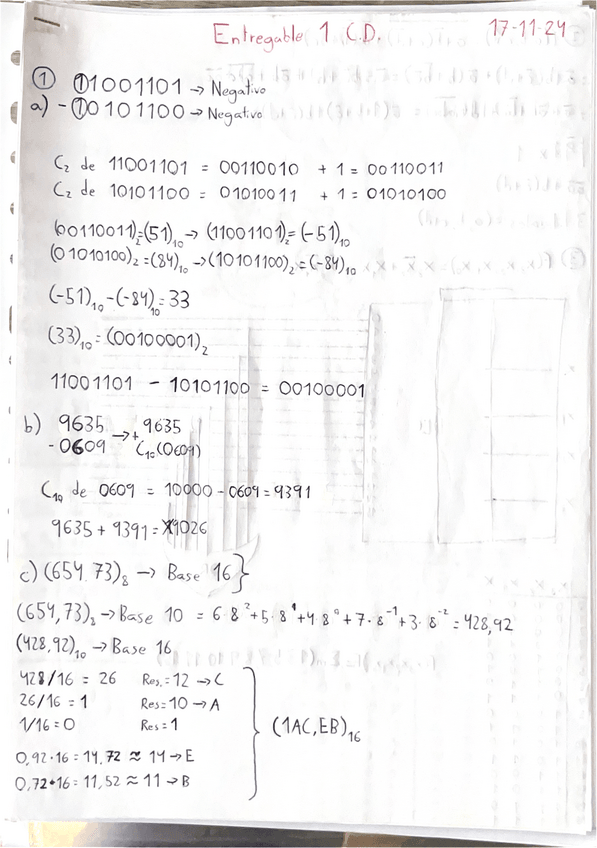 Entregable 1 C.D. 17-11-24
① 11001101 → Negativo
a) - 10101100 → Negativo
C₂ de 11001101 = 00110010 + 1 = 00110011
C₂ de 10101100 = 01010011 + 1 = 01010100
(00110011)₂=(51)₁₀ → (11001101)₂=(-51)₁₀
(01010100)₂=(84)₁₀ → (10101100)₂=(-84)₁₀
(-51)₁₀-(-84)₁₀=33
(33)₁₀=(00100001)₂
11001101 - 10101100 = 00100001
b) 9635 → 9635
- 0609 + C₁₀(0609)
C₁₀ de 0609 = 10000 - 0609 = 9391
9635 + 9391 = 19026
c) (654,73)₈ → Base 16 }
(654,73)₈ → Base 10 = 6·8²+5·8¹+4·8⁰+7·8⁻¹+3·8⁻² = 428,92
(428,92)₁₀ → Base 16
428/16 = 26 Res.=12 → C
26/16 = 1 Res=10 → A
1/16=0 Res=1
(1AC,EB)₁₆
0,92·16=14,72 ≈ 14 → E
0,72·16=11,52 ≈ 11 → B